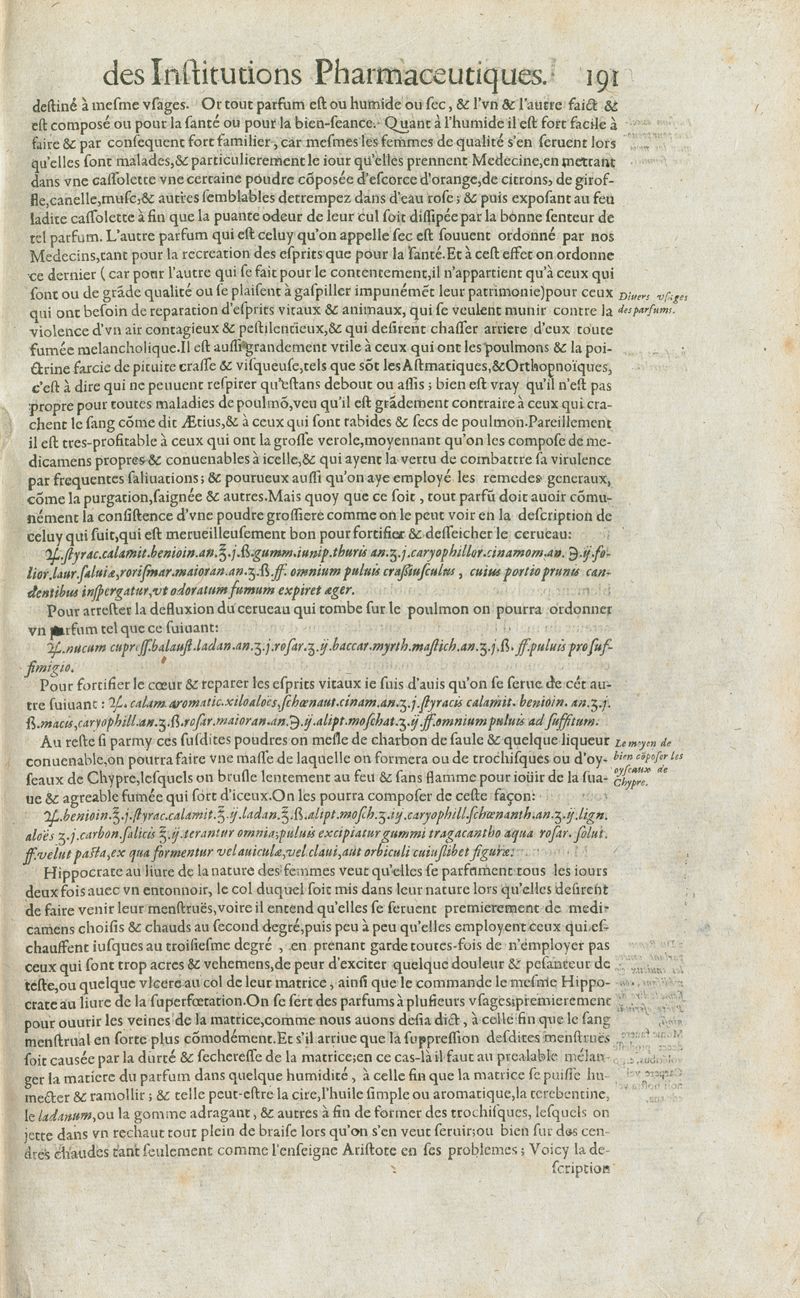 des Inſtitutions Pharmaceutiques. 191
deſtiné à meſme vſages. Or tout parfum eſt ou humide ou ſec, & l'vn & l'autre faict &
eſt composé ou pour la ſanté ou pour la bien-ſeance. Quant à l'humide il eſt fort facile à
faire & par conſequent fort familier, car meſmes les femmes de qualité s'en ſeruent lors
qu'elles ſont malades,& particulierement le iour qu'elles prennent Medecine,en mettant
dans vne caſſolette vne certaine poudre cõpoſée d'eſcorce d'orange,de citrons, de girof-
fle,canelle,muſc,& autres ſemblables detrempez dans d'eau roſe; & puis expoſant au feu
ladite caſſolette à fin que la puante odeur de leur cul ſoit diſſipée par la bonne ſenteur de
tel parfum. L'autre parfum qui eſt celuy qu'on appelle ſec eſt ſouuent ordonné par nos
Medecins,tant pour la recreation des eſprits que pour la ſanté.Et à ceſt effet on ordonne
ce dernier ( car pour l'autre qui ſe fait pour le contentement,il n'appartient qu'à ceux qui
ſont ou de grãde qualité ou ſe plaiſent à gaſpiller impunémẽt leur patrimonie)pour ceux
Diuers vſages
qui ont beſoin de reparation d'eſprits vitaux & animaux, qui ſe veulent munir contre la
des parfums.
violence d'vn air contagieux & peſtilentieux,& qui deſirent chaſſer arriere d'eux toute
fumée melancholique.Il eſt auſſi grandement vtile à ceux qui ont les poulmons & la poi-
ctrine farcie de pituite craſſe & viſqueuſe,tels que sõt les Aſtmatiques,&Orthopnoïques,
c'eſt à dire qui ne peuuent reſpirer qu'eſtans debout ou aſſis ; bien eſt vray qu'il n'eſt pas
propre pour toutes maladies de poulmõ,veu qu'il eſt grãdement contraire à ceux qui cra-
chent le ſang cõme dit Ætius,& à ceux qui ſont rabides & ſecs de poulmon.Pareillement
il eſt tres-profitable à ceux qui ont la groſſe verole,moyennant qu'on les compoſe de me-
dicamens propres & conuenables à icelle,& qui ayent la vertu de combattre ſa virulence
par frequentes ſaliuations; & pourueux auſſi qu'on aye employé les remedes generaux,
cõme la purgation,ſaignée & autres.Mais quoy que ce ſoit , tout parfũ doit auoir cõmu-
nément la conſiſtence d'vne poudre groſſiere comme on le peut voir en la deſcription de
celuy qui ſuit,qui eſt merueilleuſement bon pour fortifier & deſſeicher le cerueau:
♃.ſtyrac.calamit.benioin.an.℥.j.ß.gumm.iunip.thuris an.ʒ.j.caryophillor.cinamom.an. ℈.ij.fo-
lior.laur.ſaluiæ,roriſmar.maioran.an.ʒ.ß.ff. omnium puluis craſſiuſculus , cuius portio prunis can-
dentibus inſpergatur,vt odoratum fumum expiret æger.
Pour arreſter la defluxion du cerueau qui tombe ſur le poulmon on pourra ordonner
vn parfum tel que ce ſuiuant:
♃.nucum cupreſſ.balauſt.ladan.an.ʒ.j.roſar.ʒ.ij.baccar.myrth.maſtich.an.ʒ.j.ß.ff.puluis pro ſuf-
fimigio.
Pour fortifier le cœur & reparer les eſprits vitaux ie ſuis d'auis qu'on ſe ſerue de cét au-
tre ſuiuant : ♃. calam.aromatic.xiloaloës,ſchœnaut.cinam.an.ʒ.j.ſtyracis calamit. benioin. an.ʒ.j.
ß.macis,caryophill.an.ʒ.ß.roſar.maioran.an.℈.ij.alipt.moſchat.ʒ.ij.ff.omnium puluis ad ſuffitum.
Au reſte ſi parmy ces ſuſdites poudres on meſle de charbon de ſaule & quelque liqueur
Le moyen de
conuenable,on pourra faire vne maſſe de laquelle on formera ou de trochiſques ou d'oy-
bien cõpoſer les
ſeaux de Chypre,leſquels on bruſle lentement au feu & ſans flamme pour ioüir de la ſua-
oyſeaux de
Chypre.
ue & agreable fumée qui ſort d'iceux.On les pourra compoſer de ceſte façon:
♃.benioin.℥.j.ſtyrac.calamit.℥.ij.ladan.℥.ß.alipt.moſch.ʒ.ij.caryophill.ſchœnanth.an.ʒ.ij.lign.
aloës ʒ.j.carbon.ſalicis ℥.ij.terantur omnia;puluis excipiatur gummi tragacantho aqua roſar. ſolut.
ff.velut paſta,ex qua formentur vel auiculæ,vel claui,aut orbiculi cuiuſlibet figuræ.
Hippocrate au liure de la nature des femmes veut qu'elles ſe parfument tous les iours
deux fois auec vn entonnoir, le col duquel ſoit mis dans leur nature lors qu'elles deſirent
de faire venir leur menſtruës,voire il entend qu'elles ſe ſeruent premierement de medi-
camens choiſis & chauds au ſecond degré,puis peu à peu qu'elles employent ceux qui eſ-
chauffent iuſques au troiſieſme degré , en prenant garde toutes-fois de n'employer pas
ceux qui ſont trop acres & vehemens,de peur d'exciter quelque douleur & peſanteur de
teſte,ou quelque vlcere au col de leur matrice, ainſi que le commande le meſme Hippo-
crate au liure de la ſuperfœtation.On ſe ſert des parfums à pluſieurs vſages;premierement
pour ouurir les veines de la matrice,comme nous auons deſia dict, à celle fin que le ſang
menſtrual en ſorte plus cõmodément.Et s'il arriue que la ſuppreſſion deſdites menſtruës
ſoit causée par la durté & ſechereſſe de la matrice;en ce cas-là il faut au prealable mélan-
ger la matiere du parfum dans quelque humidité, à celle fin que la matrice ſe puiſſe hu-
mecter & ramollir ; & telle peut-eſtre la cire,l'huile ſimple ou aromatique,la terebentine,
le ladanum,ou la gomme adragant, & autres à fin de former des trochiſques, leſquels on
jette dans vn rechaut tout plein de braiſe lors qu'on s'en veut ſeruir;ou bien ſur des cen-
dres chaudes tant ſeulement comme l'enſeigne Ariſtote en ſes problemes ; Voicy la de-
ſcription